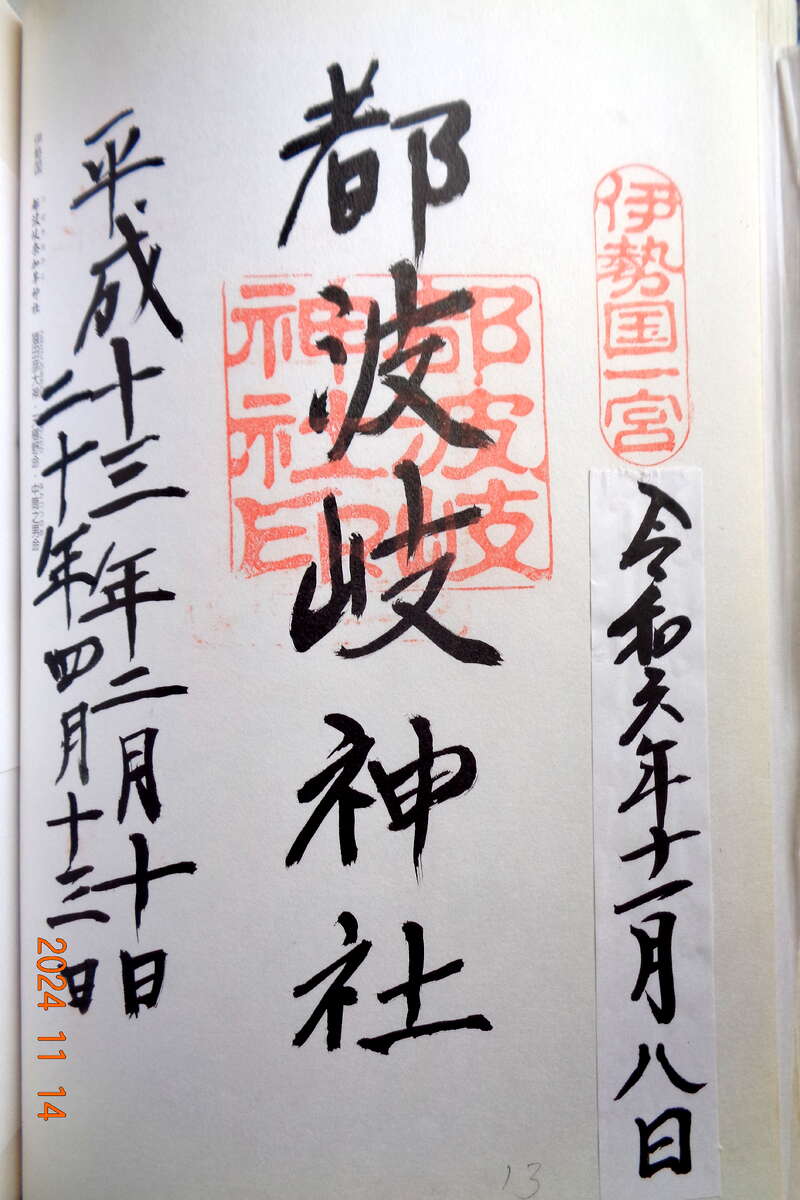 伊勢国一宮
令和六年十一月八日
都波岐神社
都波岐
神社印
平成十三年二月十日
二十年四月十三日
2024 11 14
13